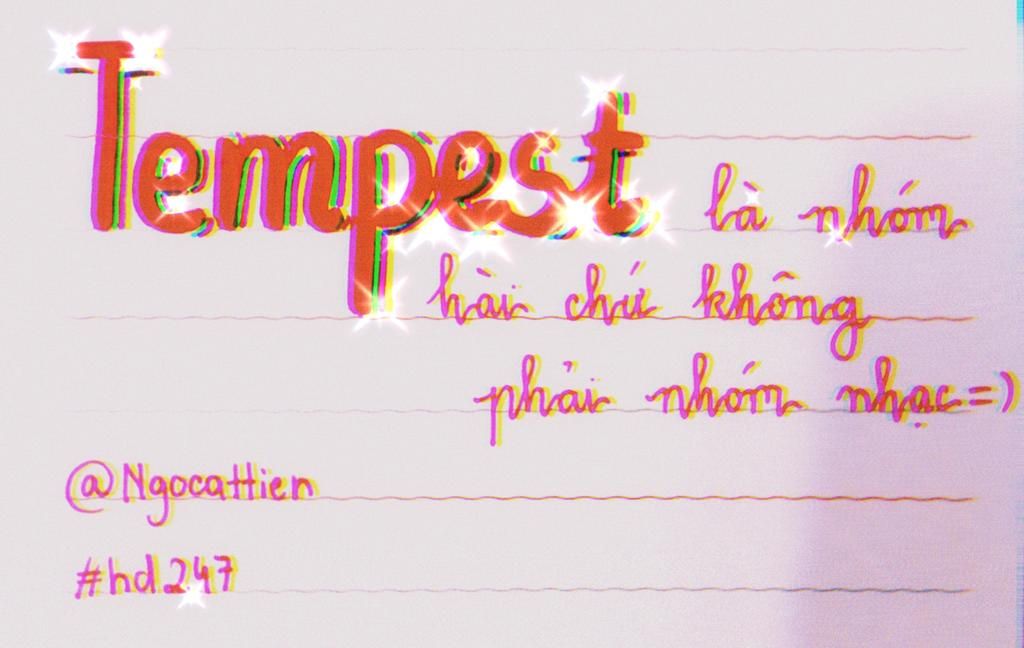 Tempest là nhóm
hài chứ không
phải nhóm nhạc=)
@Ngocattien
#hd.247